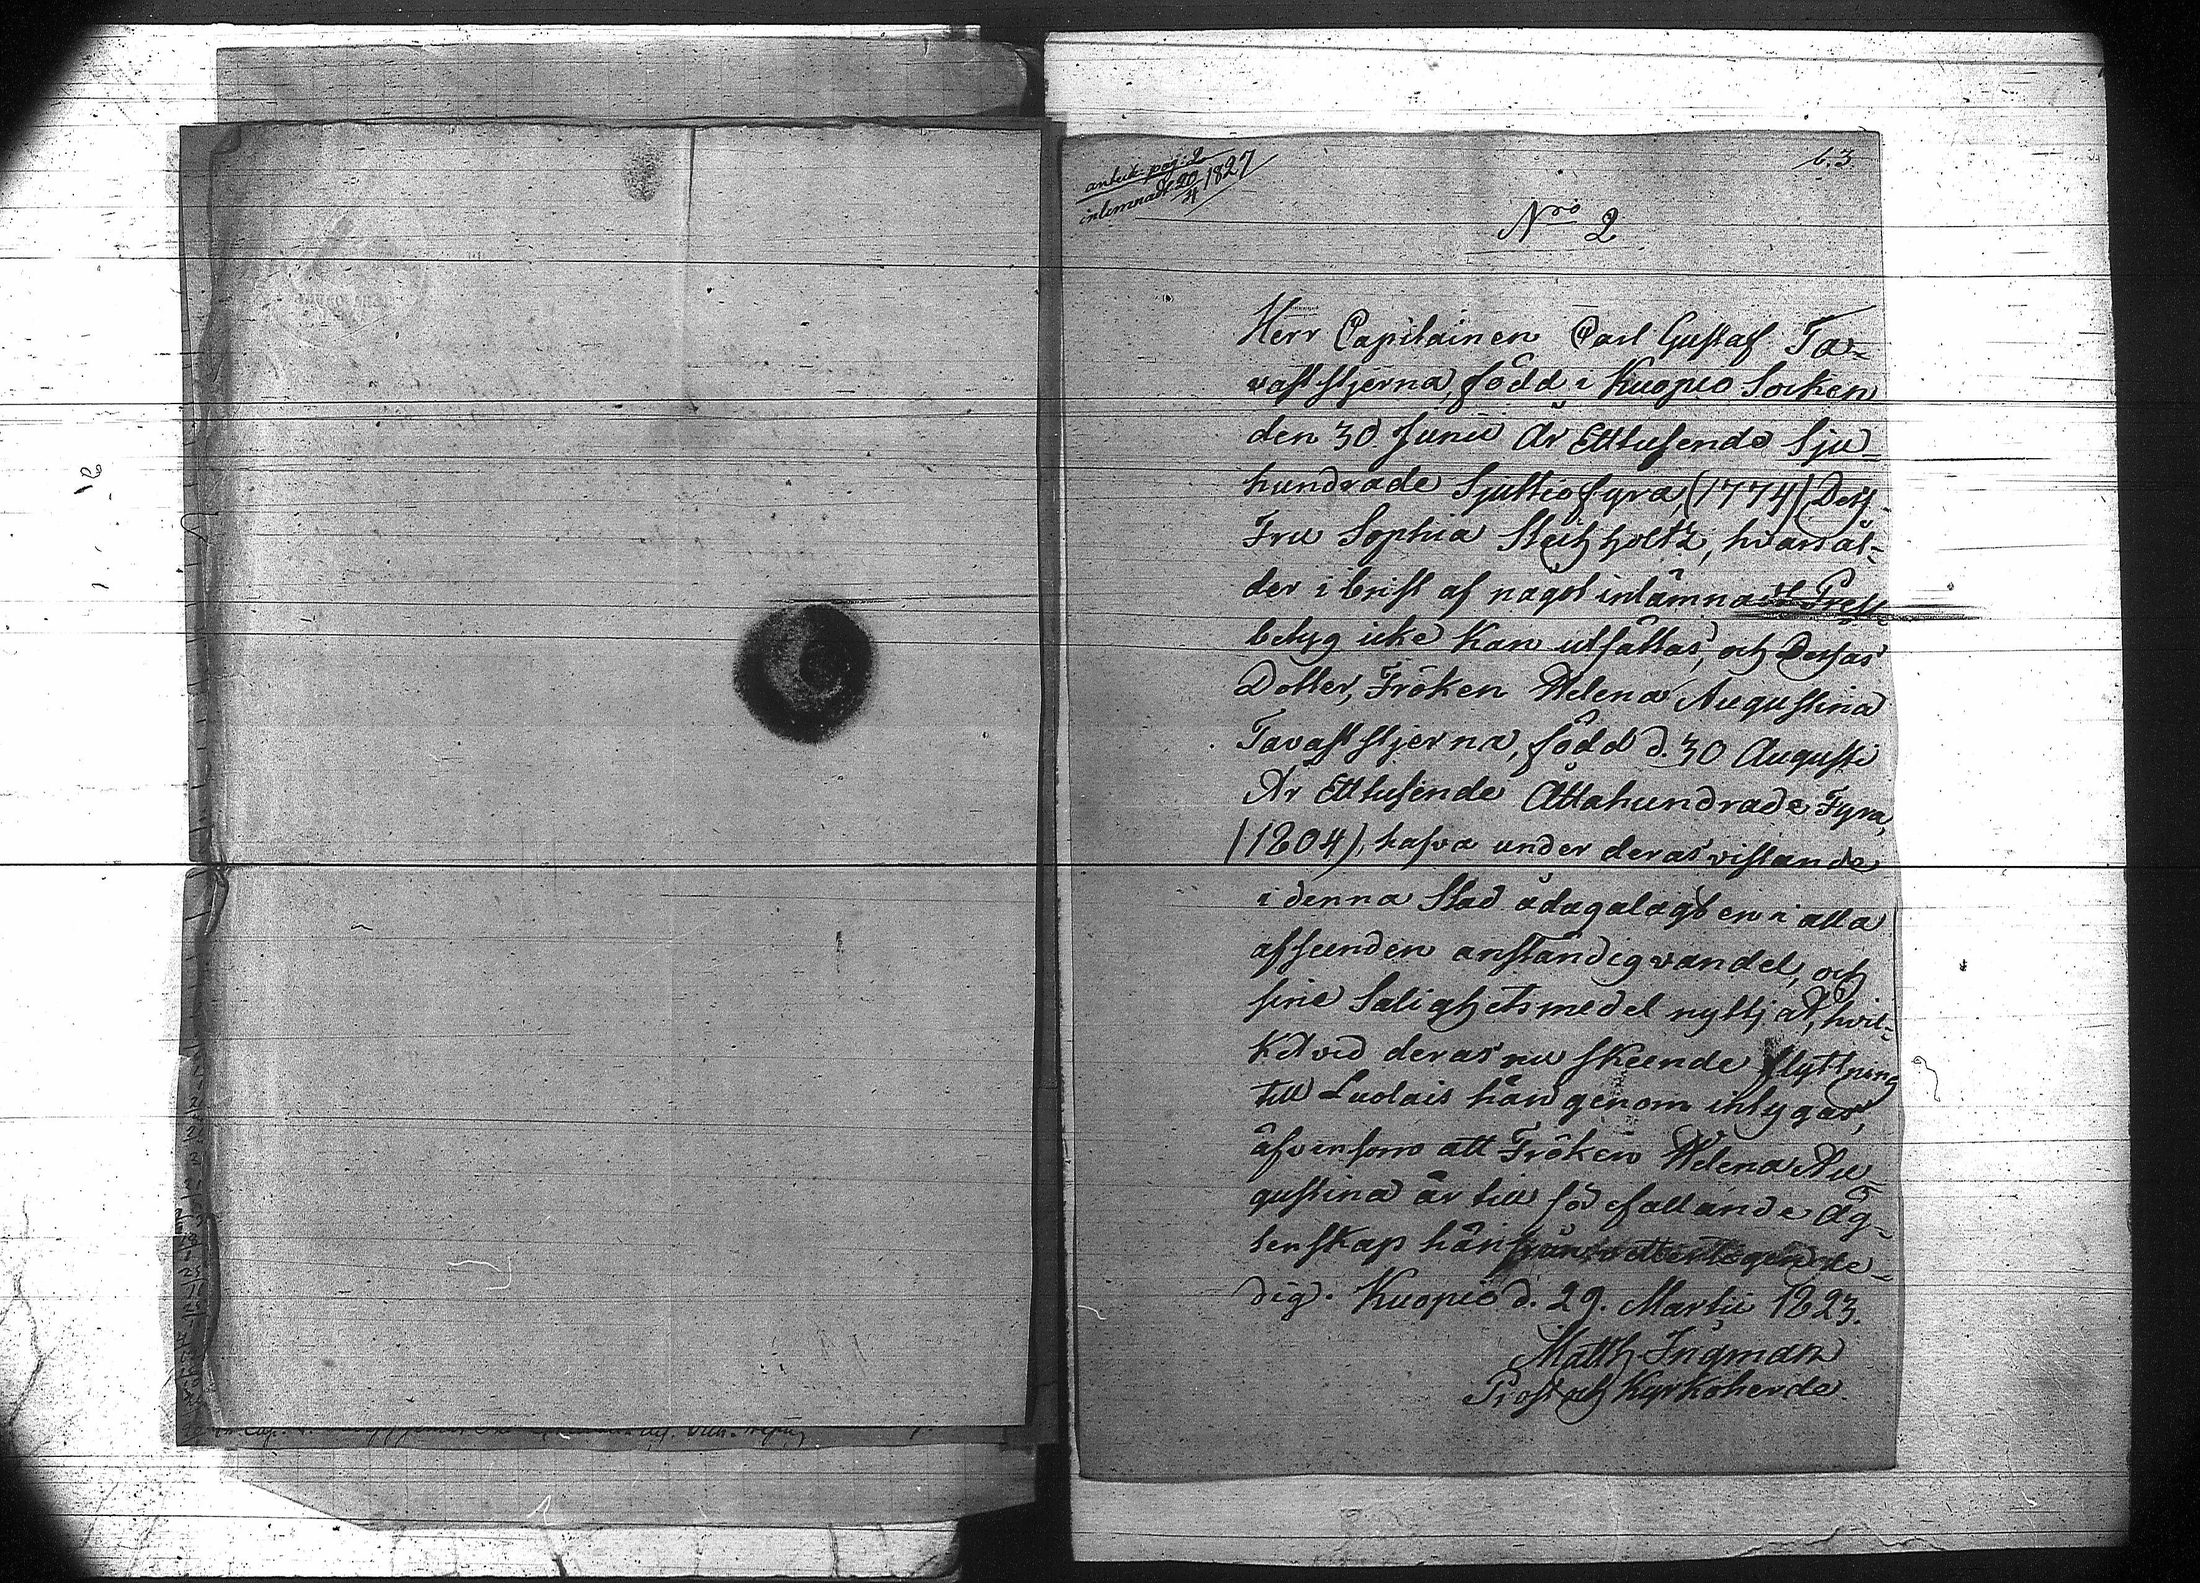 anteck. pag: 2
inlemnadt 20/4 1827
b. 3.
Nro 2
Herr Capitainen Carl Gustaf Ta-
vaststjerna, född i Kuopio Socken
den 30 Junii År Ettusende Sju-
hundrade Sjuttiofyra, (1774) Dess
Fru Sophia Stichholtz, hvars ål-
der i brist af något inlämnadt Prest
betyg icke kan utsättas, och Dessas
Dotter, Fröken Helena Augustina
Tavaststjerna, född d. 30 Augusti
År Ettusende Åttahundrade Fyra,
(1804), hafva under deras vistande
i denna Stad ådagalagt en i alla
afseenden anständig vandel, och
sine Salighetsmedel nyttjat, hvil-
ket vid deras nu skeende flyttning
till Luolais härigenom intygas,
äfvensom att Fröken Helena Au-
gustina är till förefallande Äg-
tenskap härifrån le-
dig. Kuopio d. 29. Martii 1823.
Matth. Ingman
Prost och Kyrkoherde